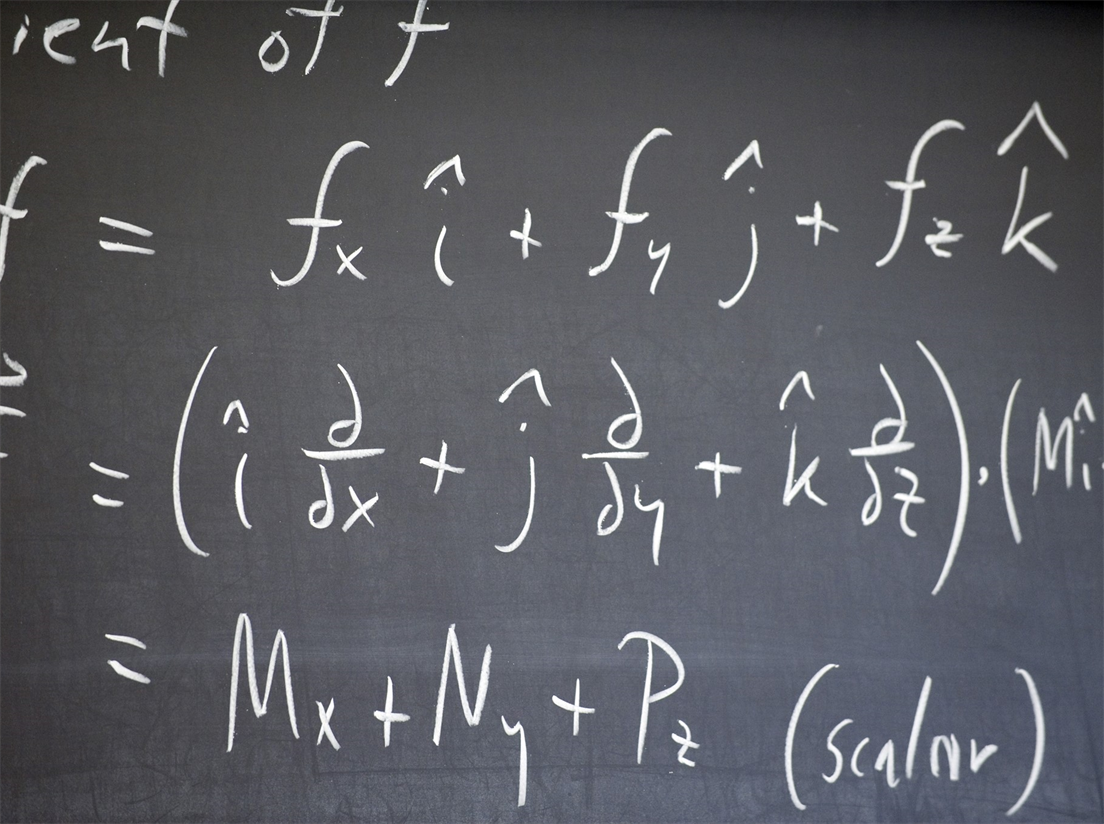 ient of f
f = f_x î + f_y ĵ + f_z k̂
= (î ∂/∂x + ĵ ∂/∂y + k̂ ∂/∂z) · (M î
= M_x + N_y + P_z (scalar)